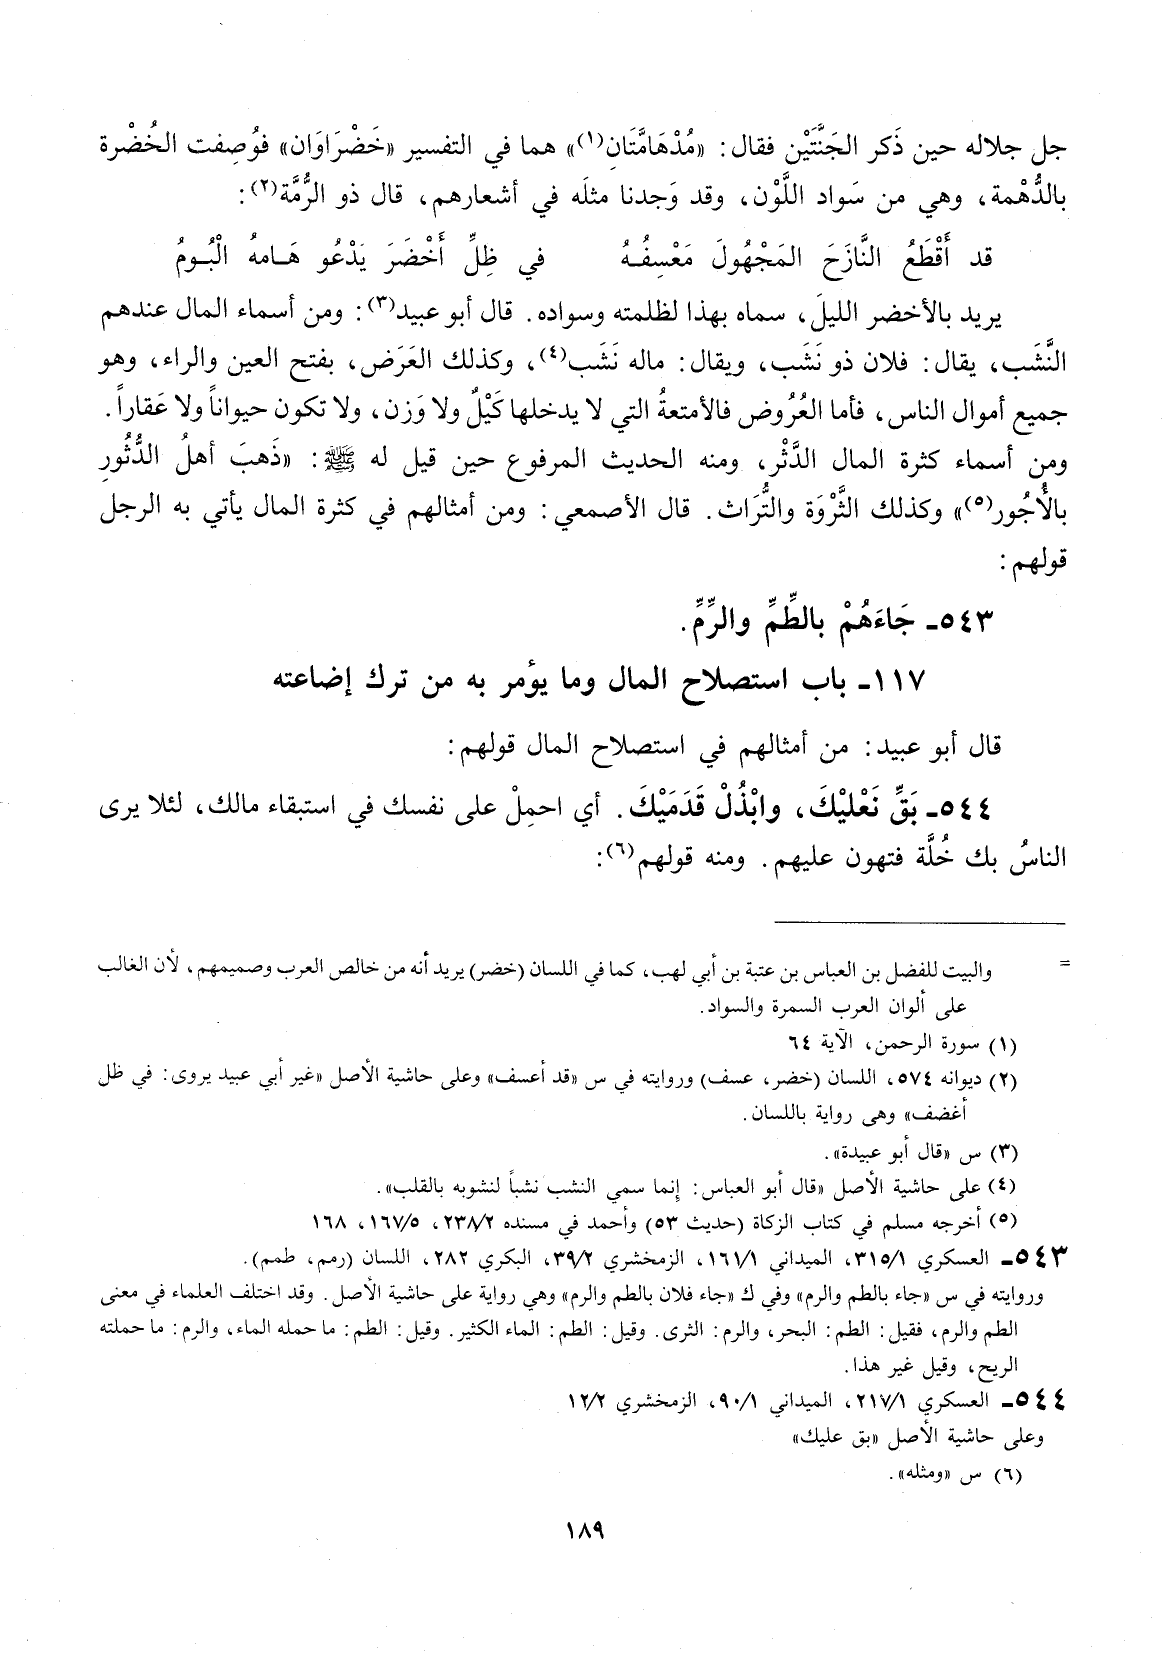 جل جلاله حين ذَكر الجَنَّتَيْن فقال: «مُدْهَامَّتَانِ(١)» هما في التفسير «خَضْرَاوَان» فوُصِفت الخُضْرة
بالدُّهْمة، وهي من سَواد اللَّوْن، وقد وَجدنا مثلَه في أشعارهم، قال ذو الرُّمَّة(٢):
قد أَقْطَعُ النَّازَحَ المَجْهُولَ مَعْسِفُهُ في ظِلِّ أَخْضَرَ يَدْعُو هَامهُ الْبُومُ
يريد بالأخضر الليلَ، سماه بهذا لظلمته وسواده. قال أبو عبيد(٣): ومن أسماء المال عندهم
النَّشَب، يقال: فلان ذو نَشَب، ويقال: ماله نَشَب(٤)، وكذلك العَرَض، بفتح العين والراء، وهو
جميع أموال الناس، فأما العُرُوض فالأمتعةُ التي لا يدخلها كَيْلٌ ولا وَزن، ولا تكون حيواناً ولا عَقاراً.
ومن أسماء كثرة المال الدَّثْر، ومنه الحديث المرفوع حين قيل له ﷺ: «ذَهبَ أهلُ الدُّثُورِ
بالأُجُور(٥)» وكذلك الثَّرْوَة والتُّرَاث. قال الأصمعي: ومن أمثالهم في كثرة المال يأتي به الرجل
قولهم:
٥٤٣ـ جَاءَهُمْ بالطِّمِّ والرِّمِّ.
١١٧ـ باب استصلاح المال وما يؤمر به من ترك إضاعته
قال أبو عبيد: من أمثالهم في استصلاح المال قولهم:
٥٤٤ـ بَقِّ نَعْليْكَ، وابْذُلْ قَدَمَيْكَ. أي احمِلْ على نفسك في استبقاء مالك، لئلا يرى
الناسُ بك خُلَّة فتهون عليهم. ومنه قولهم(٦):
= والبيت للفضل بن العباس بن عتبة بن أبي لهب، كما في اللسان (خضر) يريد أنه من خالص العرب وصميمهم، لأن الغالب
على ألوان العرب السمرة والسواد.
(١) سورة الرحمن، الآية ٦٤
(٢) ديوانه ٥٧٤، اللسان (خضر، عسف) وروايته في س «قد أعسف» وعلى حاشية الأصل «غير أبي عبيد يروى: في ظل
أغضف» وهى رواية باللسان.
(٣) س «قال أبو عبيدة».
(٤) على حاشية الأصل «قال أبو العباس: إنما سمي النشب نشباً لنشوبه بالقلب».
(٥) أخرجه مسلم في كتاب الزكاة (حديث ٥٣) وأحمد في مسنده ٢٣٨/٢، ١٦٧/٥، ١٦٨
٥٤٣ـ العسكري ٣١٥/١، الميداني ١٦١/١، الزمخشري ٣٩/٢، البكري ٢٨٢، اللسان (رمم، طمم).
وروايته في س «جاء بالطم والرم» وفي ك «جاء فلان بالطم والرم» وهي رواية على حاشية الأصل. وقد اختلف العلماء في معنى
الطم والرم، فقيل: الطم: البحر، والرم: الثرى. وقيل: الطم: الماء الكثير. وقيل: الطم: ما حمله الماء، والرم: ما حملته
الريح، وقيل غير هذا.
٥٤٤ـ العسكري ٢١٧/١، الميداني ٩٠/١، الزمخشري ١٢/٢
وعلى حاشية الأصل «بق عليك»
(٦) س «ومثله».
١٨٩